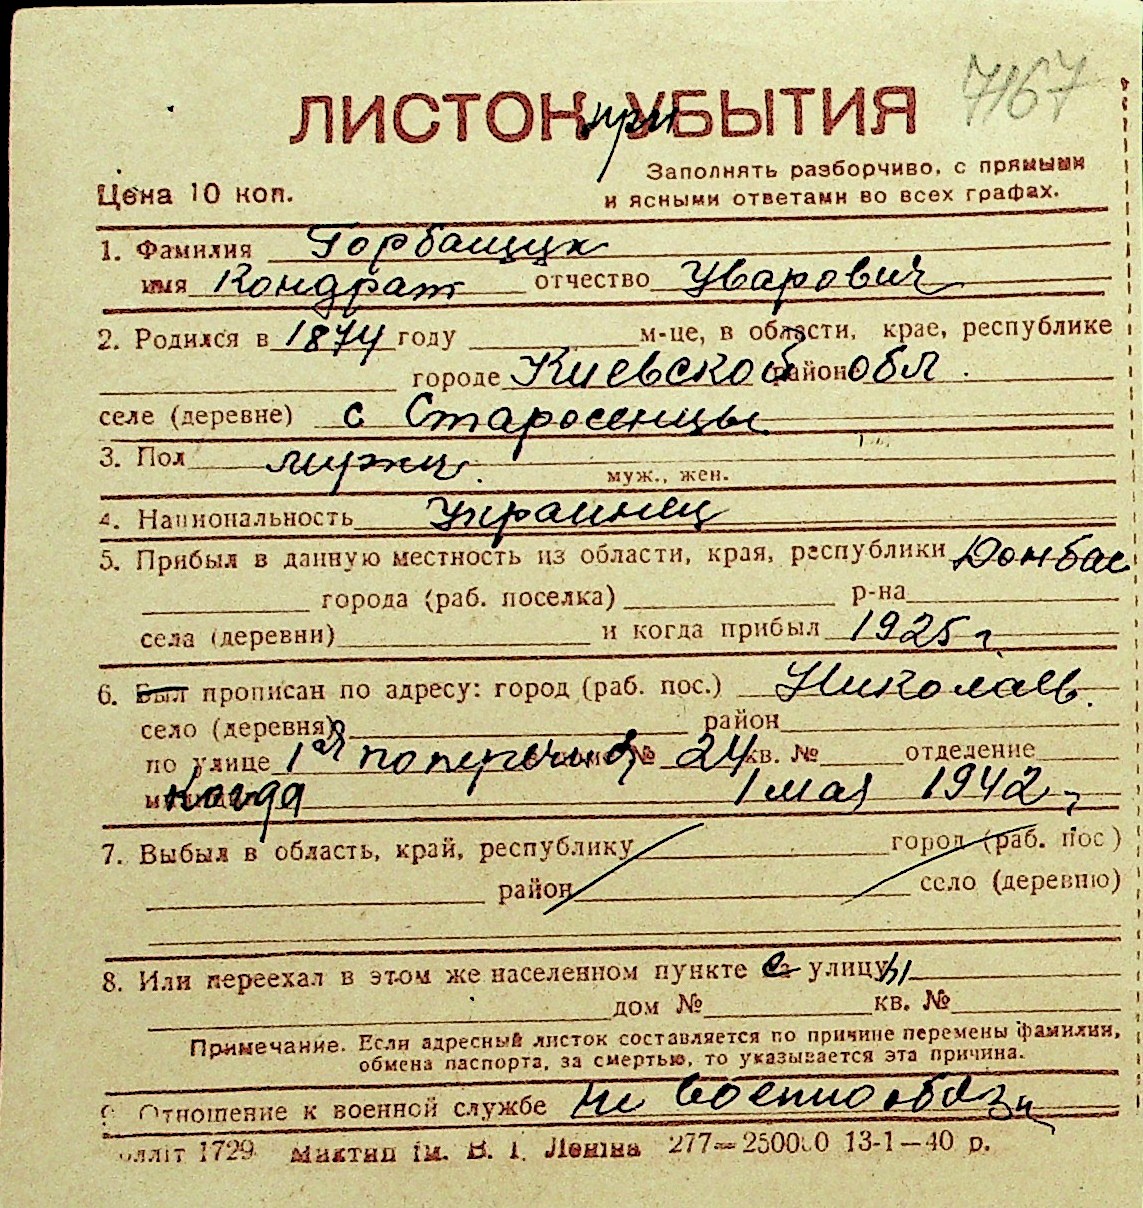 7167
ЛИСТОК при УБЫТИЯ
Заполнять разборчиво, с прямыми
Цена 10 коп.
и ясными ответами во всех графах.
1. Фамилия Горбащук
имя Кондрат отчество Уварович
2. Родился в 1874 году м-це, в области, крае, республике
городе Киевской район обл.
селе (деревне) с Старосенцы
3. Пол мужч.
муж., жен.
4. Национальность Украинец
5. Прибыл в данную местность из области, края, республики Донбас
города (раб. поселка) р-на
села (деревни) и когда прибыл 1925 г.
6. Был прописан по адресу: город (раб. пос.) Николаев.
село (деревня) район
по улице 1ая поперечная № 24 кв. № отделение
когда 1 мая 1942 г.
7. Выбыл в область, край, республику город (раб. пос)
район село (деревню)
8. Или переехал в этом же населенном пункте с улицы
дом № кв. №
Примечание. Если адресный листок составляется по причине перемены фамилии,
обмена паспорта, за смертью, то указывается эта причина.
9 Отношение к военной службе не военнообяз
1729 Миктип ім. В. І. Леніна 277—250000 13-1—40 р.